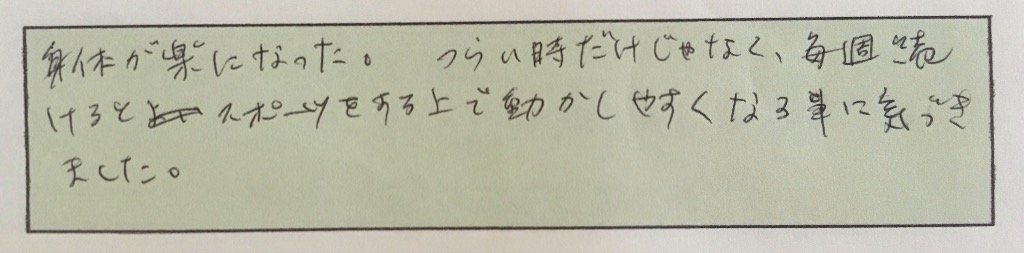 身体が楽になった。 つらい時だけじゃなく、毎週続
けると スポーツをする上で動かしやすくなる事に気づき
ました。